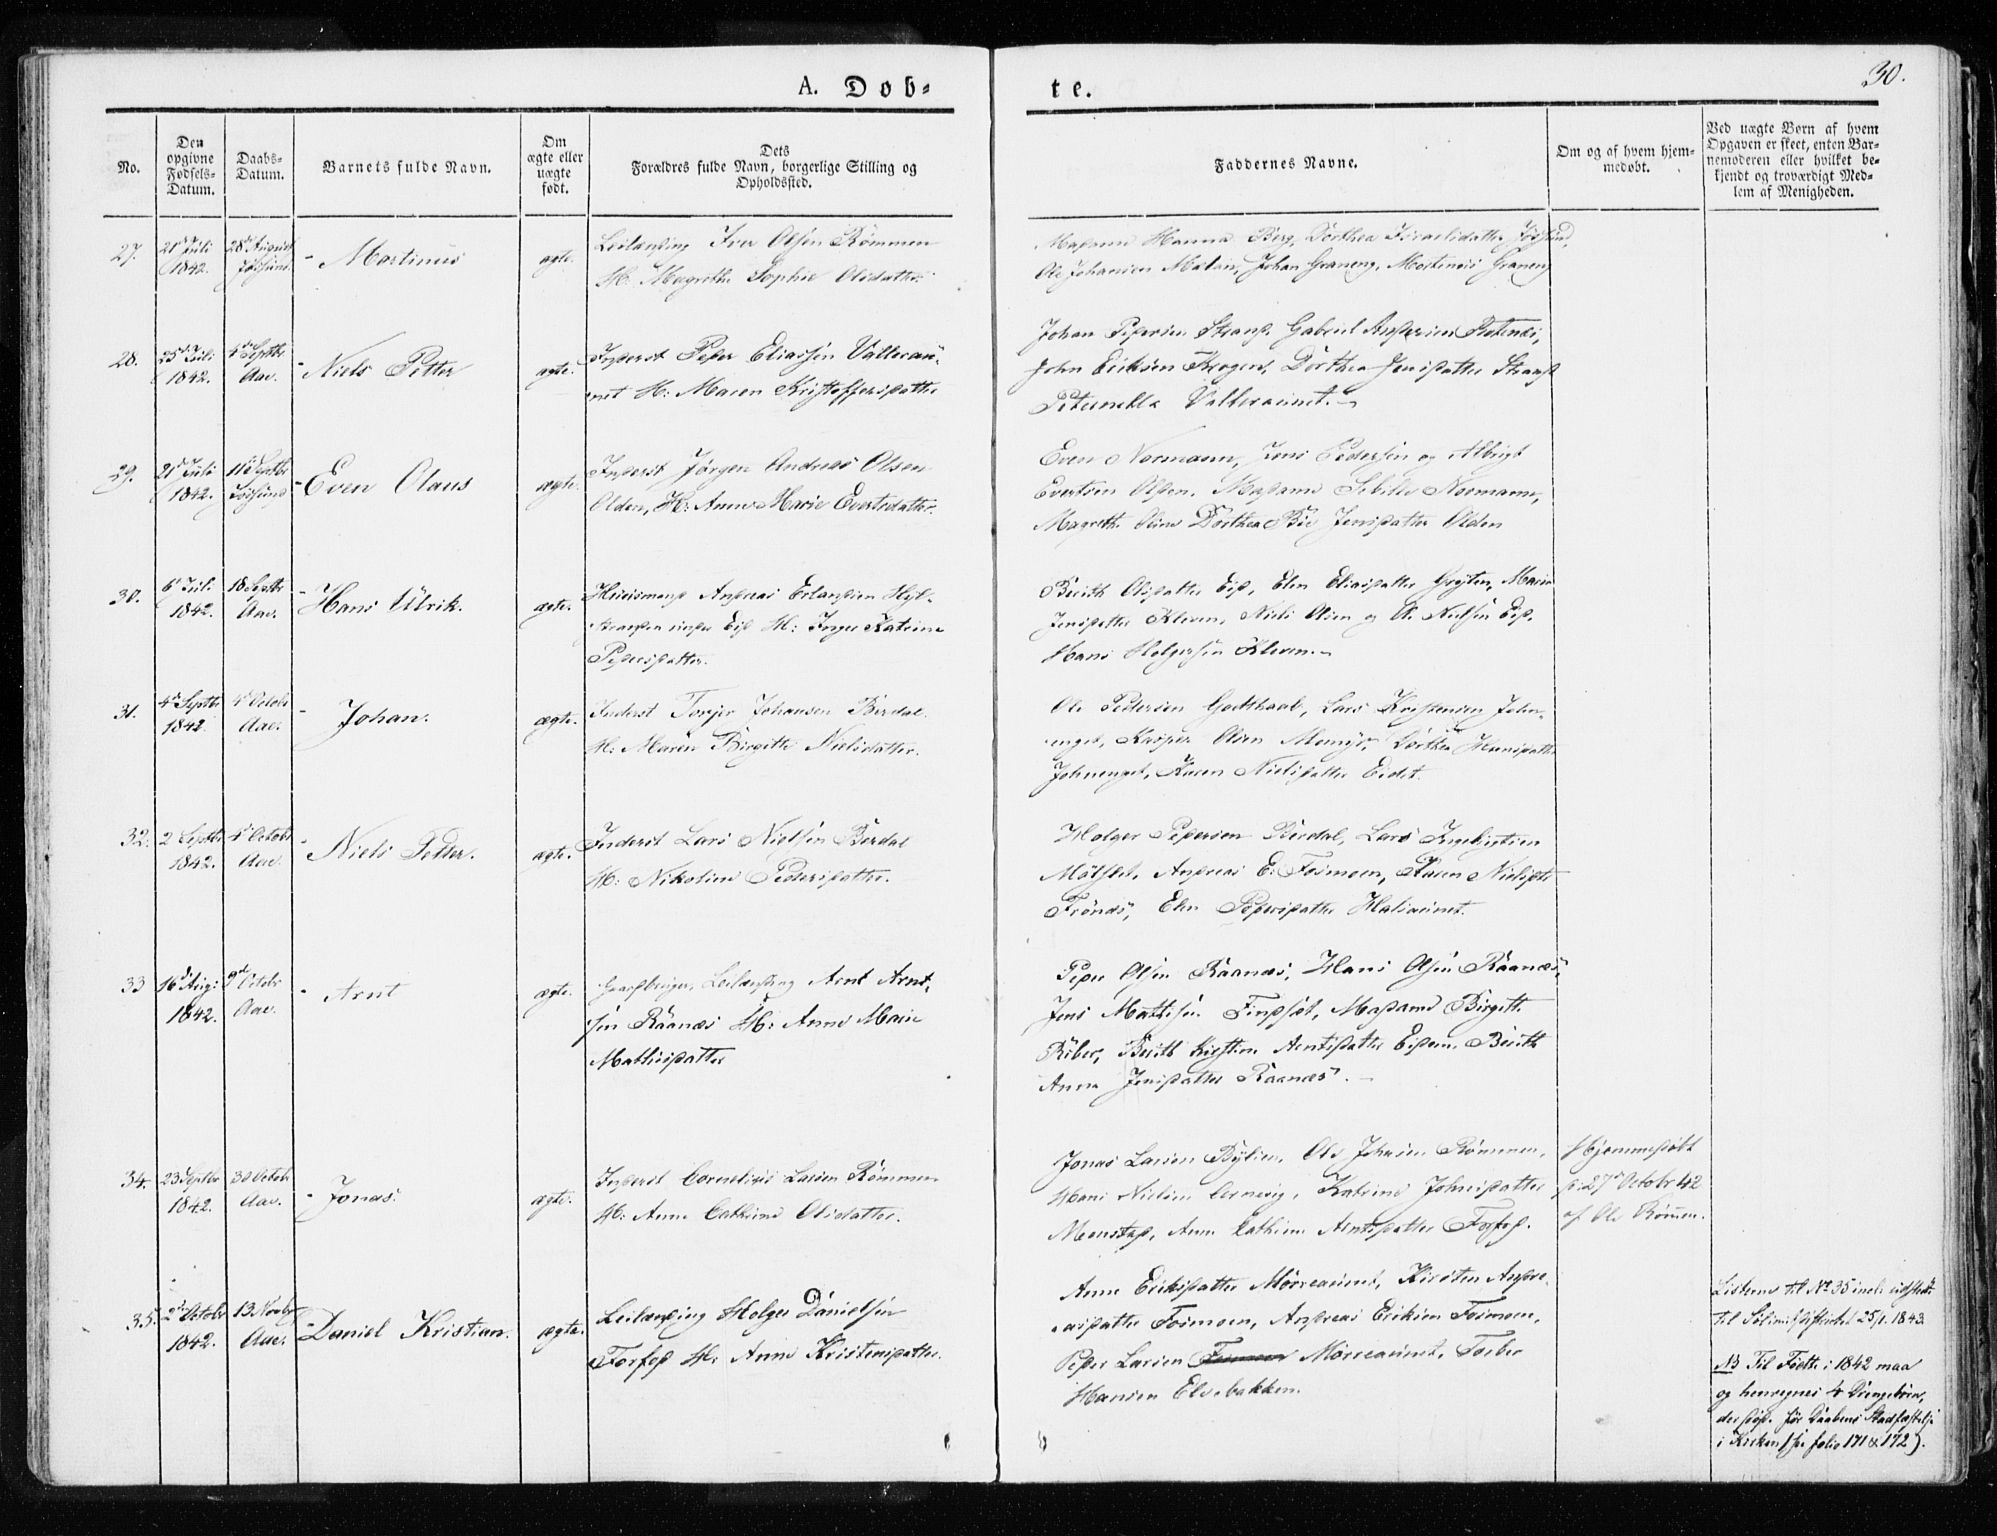 30.
A. Døb-
te.
No.
Den opgivne Fødsels-Datum.
Daabs-Datum.
Barnets fulde Navn.
Om ægte eller uægte født.
Dets Forældres fulde Navn, borgerlige Stilling og Opholdssted.
Faddernes Navne.
Om og af hvem hjemmedøbt.
Ved uægte Børn af hvem Opgaven er skeet, enten Barnemoderen eller hvilket bekjendt og troværdigt Medlem af Menigheden.
27.
21de Juli 1842.
28de August Jøssund.
Martinus
ægte.
Leilænding Iver Olsen Rømmen
H: Magrethe Sophie Olsdatter.
Madame Hanna Berg, Dorthea Israelsdatter Jøssund,
Ole Johansen Melan, Johan Graneng, Martinus Graneng
28.
25de Juli 1842.
4de Septbr Aae.
Niels Petter
ægte.
Inderst Peder Eliassen Valleraunet
H: Maren Kristoffersdatter
Johan Pedersen Strand, Gabriel Andersen
John Eriksen Krogen, Dorthea Jensdatter Strand
Peternella Valleraunet.
29.
21de Juli 1842.
11te Septbr Jøssund
Even Olaus
ægte.
Inderst Jørgen Andreas Olsen
Olden, H: Anne Marie Evertsdatter.
Even Normann, Jens Pedersen og Albrigt
Evertsen Olden. Madame Sebille Normann,
Magrethe Olden Dorthea Bie Jensdatter Olden
30.
6te Juli 1842.
18 Septbr Aae.
Hans Ulrik.
ægte.
Huusmand Andreas Erlandsen
under Eid H: Inger Katrine
Pedersdatter.
Berith Olsdatter Eid, Elen Eliasdatter Maria
Jensdatter Kleven, Niels Olsen og O. Nielsen Eid,
Hans Holgersen Kleven.
31.
4de Septbr 1842
4de Octobr Aae.
Johan.
ægte.
Inderst Torjer Johansen Berdal.
H: Maren Birgithe Nielsdatter.
Ole Pedersen Godthaab, Lars Kristensen John-
enget, Kasper Olsen Momyr, Dorthea Hansdatter
Johnenget, Karen Nielsdatter Eidet.
32.
2 Septbr 1842.
4de Octobr Aae.
Niels Petter.
ægte.
Inderst Lars Nielsen Berdal
H: Nikoline Pedersdatter.
Holger Pedersen Berdal, Lars Ingebrigtsen
Andreas E. Fosmoen, Karen Nielsdtr
Elen Pedersdatter
33
16de Aug: 1842.
9de Octobr Aae.
Arnt
ægte.
Gaardbruger, Leilænding Arnt Arnt-
sen Raanæs H: Anne Marie
Mathisdatter
Peder Olsen Raanæs, Hans Olsen Raanæs,
Jens Mathisen Madame Birgitte
Riber, Berith Kirstine Arntsdatter Berith
Anna Jensdatter Raanæs.
34.
23 Septbr 1842.
30 Octobr Aae.
Jonas.
ægte.
Inderst Cornelius Larsen Rømmen
H: Anne Cathrine Olsdatter.
Jonas Larsen Ole Johnsen Rømmen,
Hans Nielsen Katrine Johnsdatter
Anne Cathrine Arntsdatter Forfod.
Hjemmedøbt
d: 27de Octobr 42
af Ole Rømmen.
35.
2den Octobr 1842.
13 Novbr Aae.
Daniel Kristian.
ægte.
Leilænding Holger Danielsen
Forfod H: Anne Kristensdatter.
Anne Eriksdatter Mørreaunet, Kirsten Andre-
asdatter Fosmoen, Andreas Eriksen Fosmoen,
Peder Larsen Fosmoen Mørreaunet, Torber
Hansen Elvebakken.
Listerne til No 35 incl. udstedt
til 25/1. 1843.
NB Til Fødte i 1842 maa
og henregnes 4 Drengebørn,
der døde før Daabens Stadfæstelse
i Kirken (see folio 171 & 172).